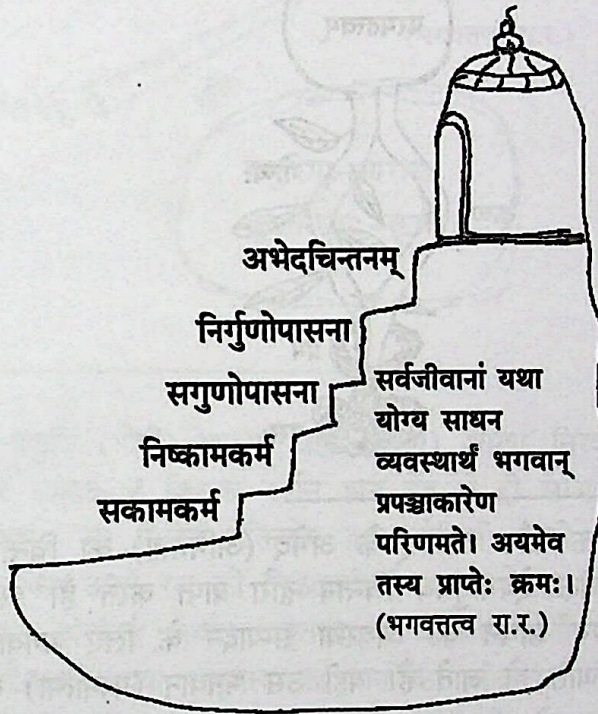 अभेदचिन्तनम्
निर्गुणोपासना
सगुणोपासना
निष्कामकर्म
सकामकर्म
सर्वजीवानां यथा
योग्य साधन
व्यवस्थार्थं भगवान्
प्रपञ्चाकारेण
परिणमते। अयमेव
तस्य प्राप्तेः क्रमः।
(भगवत्तत्व रा.र.)